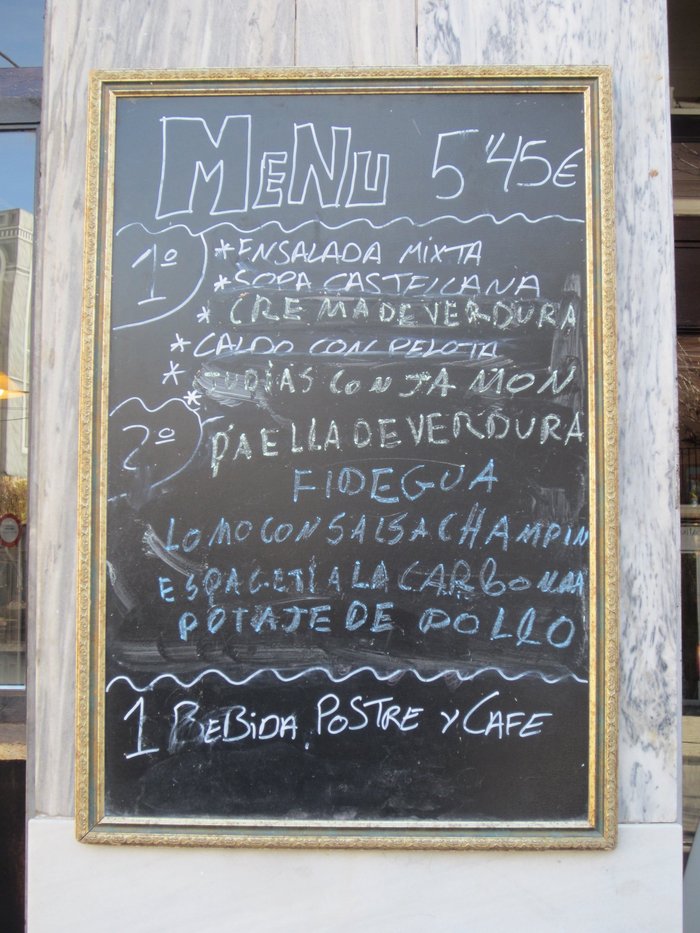 MENU 5'45€
1º * ENSALADA MIXTA
* SOPA CASTELLANA
* CREMA DE VERDURA
* CALDO CON PELOTA
* JUDÍAS CON JAMON
*
2º PAELLA DE VERDURA
FIDEGUA
LOMO CON SALSA CHAMPIN
ESPAGETIA LA CARBONARA
POTAJE DE POLLO
1 BEBIDA, POSTRE Y CAFE